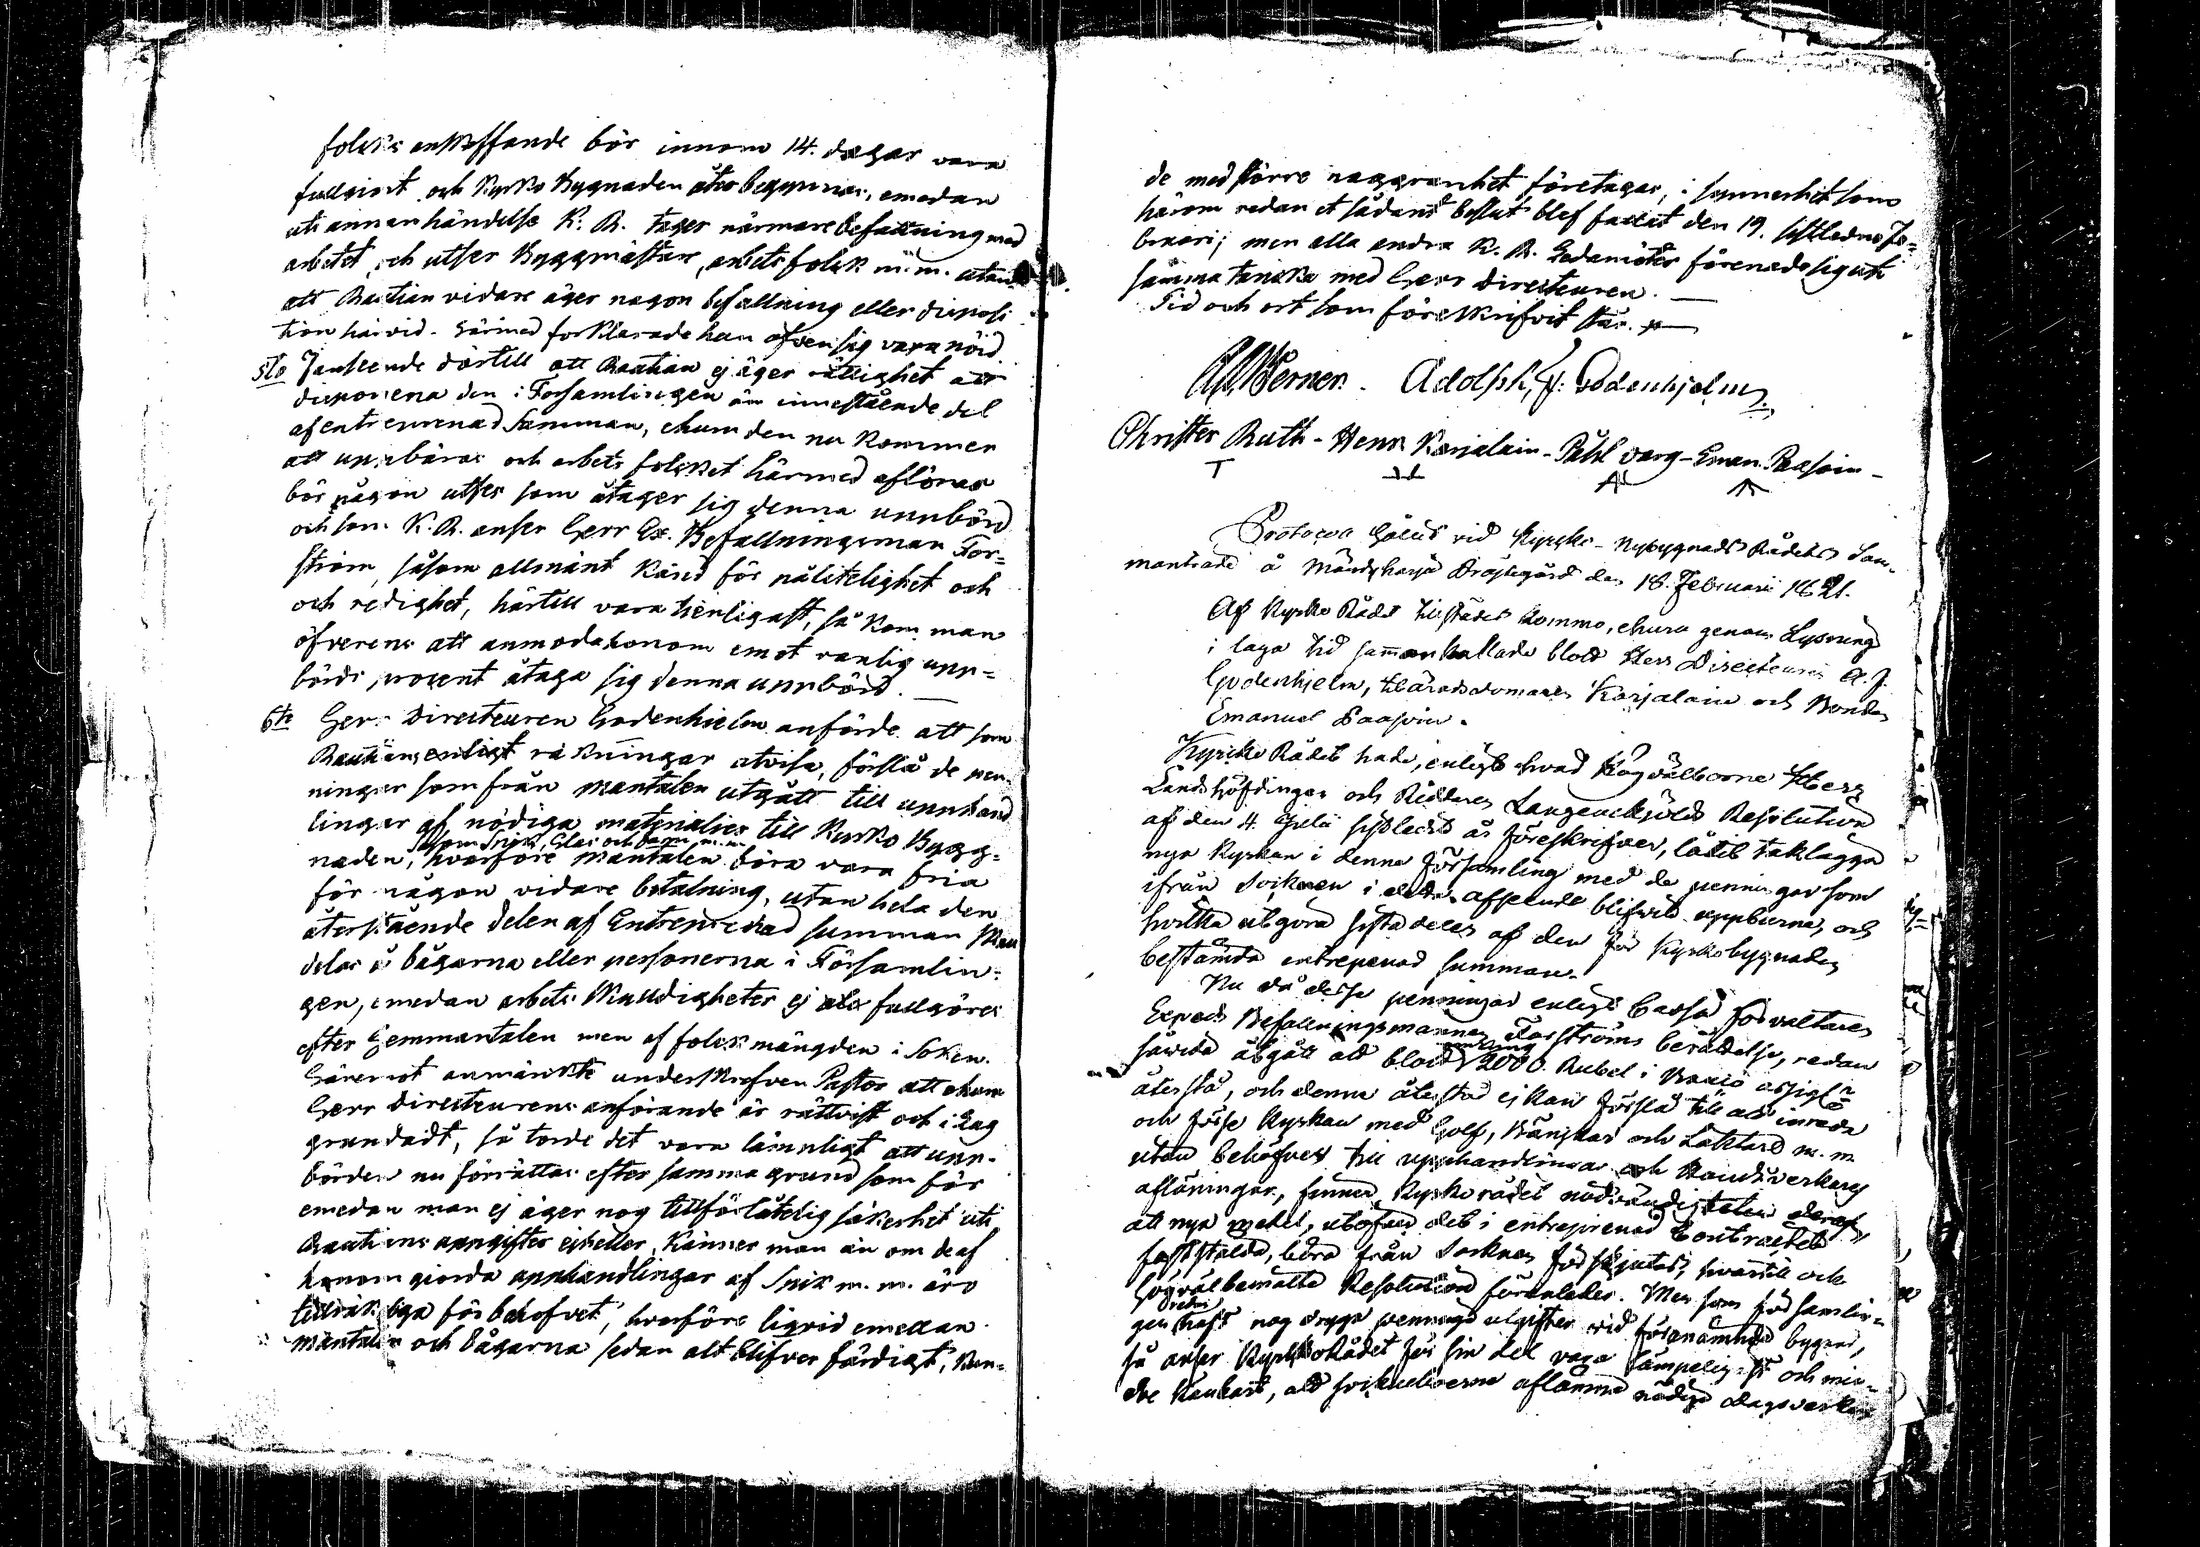 folks anskaffande bör innom 14. dagar vara
fullgiort och Kyrko Bygnaden åter begynnas, emedan
uti annan händelse K. R. tager närmare befattning med
arbetet och utser Byggmästare, arbetsfolck m. m. utan
att Rautian vidare äger nagon befallning eller disposi
tion härvid. Härmed forklarade han äfven sig vara nöid
5to I anseende dertill att Rautian ej äger rättighet att
disponera den i Forsamlingen än innestående del
af entreprenad Summan, ehuru den nu kommer
att uppbäras och arbets folcket härmed aflönas
bör någon utses som åtager sig denna uppbörd
och som K. R. anser Herr Ex. Befallningsman For=
ström, såsom allmänt känd för pålitelighet och
och redighet, härtill vara tienligast, så kom man
öfverens att anmoda honom emot vanlig upp=
börds procent åtaga sig denna uppbörd.
6te Herr Directeuren Godenhielm anförde att som
Rautians räkningar utvisa, förslå de pen=
ningar som från mantalen utgått till upphand
lingar af nödiga materialier till Kyrko Bygg=
såsom Spik, Glas och m. m.
naden, hvarföre mantalen böra vara fria
för någon vidare betalning, utan hela den
återstående delen af Entreprenad summan
delas å bågarna eller personerna i Församlin=
gen, emedan arbets skyldigheter ej fullgöres
efter Hemmantalen men af folckmängden i Soken.
Häremot anmärckte underskrefven Pastor att ehuru
Herr Directeurens anförande är rättvist och i Lag
grundadt, så torde det vara lämpligt att upp=
börden nu förrättas efter samma grund som för
emedan man ej äger nog tillförlåtelig säkerhet uti
Rautians uppgifter ejheller känner man än om de af
honom giorda upphandlingar af Spik m. m. äro
tillräckliga för behofvet, hvarföre liqvid emellan
mantalen och bågarna sedan alt blifver färdigt, kun=
de med större naggranhet företagas, i synnerhet som
härom redan et sådant beslut blef fattat den 19. sistledne Fe=
bruari; men alla andra K. R. Ledamöter förenade sig uti
samma tancka med Herr Directeuren.
Tid och ort som föreskrifvit står.
Adolph J. Godenhjelm
Christer Ruth - Henr. Karjalain - Påhl Varg - Eman. Paasoin -
Protocoll hållit vid Kyrcko-Nybygnads Rådets Sam=
manträde å Mändyharju Prästegård den 18. Februarii 1821.
Af Kyrko Rådet tillstädes kommo, ehuru genom Lysning
i laga tid sammankallade blott Herr Directeuren A. J.
Godenhielm, Häradsdomaren Karjalain och Bonden
Emanuel Paasoin.
Kyrcko Rådet hade, enligt hvad Högvälborne Herr
Landshöfdingen och Riddaren Langenskjölds Resolution
af den 4. Julii sistledit år föreskrifver, låtit taklägga
nya Kyrkan i denna församling med de penningar som
ifrån Socknen i detta afseende blifvit uppburna, och
hvilka utgöra sista delen af den för Kyrkobygnaden
bestämda entreprenad summan.
Nu då desse penningar enligt Cassa förvaltaren
Exped. Befallningsmannen Forströms berättelse, redan
såvida åtgått att blott 2000 Rubel i Banco assign.
återstå, och denna återstod ej kan förslå till att inreda
och förse Kyrkan med Golf, Bänckar och Läktare m. m
utan behöfves till upphandlingar och Handtverkares
aflöningar, finner Kyrkorådet nödvändigheten deraf
att nya medel, utöfver det i entreprenad Contractet
faststälda, böra från Socknen förskjutas, hvartill ock
högvälbemälte Resolution föranleder. Men som församlin=
redan
gen haft nog dryga pennings utgifter vid förenämnde bygnad,
så anser KyrckoRådet för sin del vara lämpeligast och min=
dre kånbart, att sockneboerne aflämna nödige Dagsverken